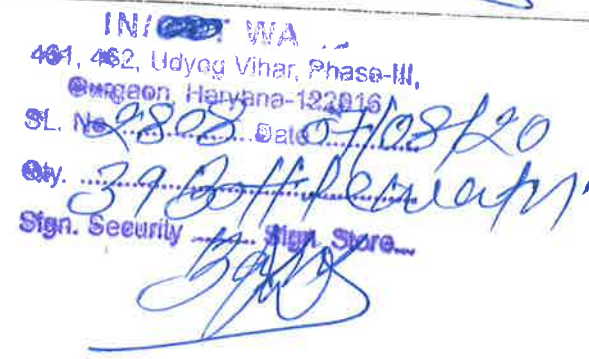 461, 462, Udyog Vihar, Phase-III,
Gurgeon, Haryana-122016
SL. No 2808 Date 07/08/20
Qty. 39 Bottle water
Sign. Security ........ Sign. Store....